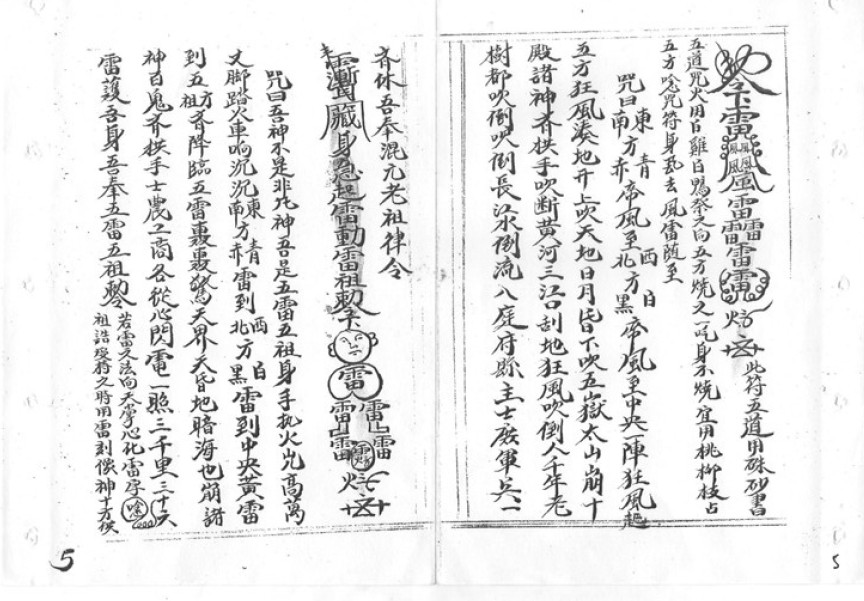 勅令雷風風風風風雷雷雷雷雷 此符五道用硃砂書
五道咒火用白雞白鴨祭又向五方燒之一身不燒宜用桃柳枝占
五方唸咒符身去風雷随至
咒曰東南方青赤帝風至西北方白黑帝風至中央一陣狂風趕
五方狂風湊地升上吹天地日月皆下吹五嶽太山崩十
殿諸神齊拱手吹断黄河三江口刮地狂風吹倒八千年老
樹都吹倒吹倒長江水倒流八庭府縣主士軍兵一
5
齊休吾奉混元老祖律令
藏身急起雷動雷祖勅令雷雷雷雷雷雷
咒曰吾神不是非凡神吾是五雷五祖身手执火光高萬
丈脚踏火車响沉沉東南方青赤雷到西北方白黑雷到中央黄雷
到五方五祖齊降臨五雷轟轟驚天界天昏地暗海也崩諸
神百鬼齊拱手士農工商各從心閃電一照三千里三十六
雷護吾身吾奉五雷五祖勅
若雷文法向天掌心孔雷字
祖誥發將之時用雷刻像神十方供
5